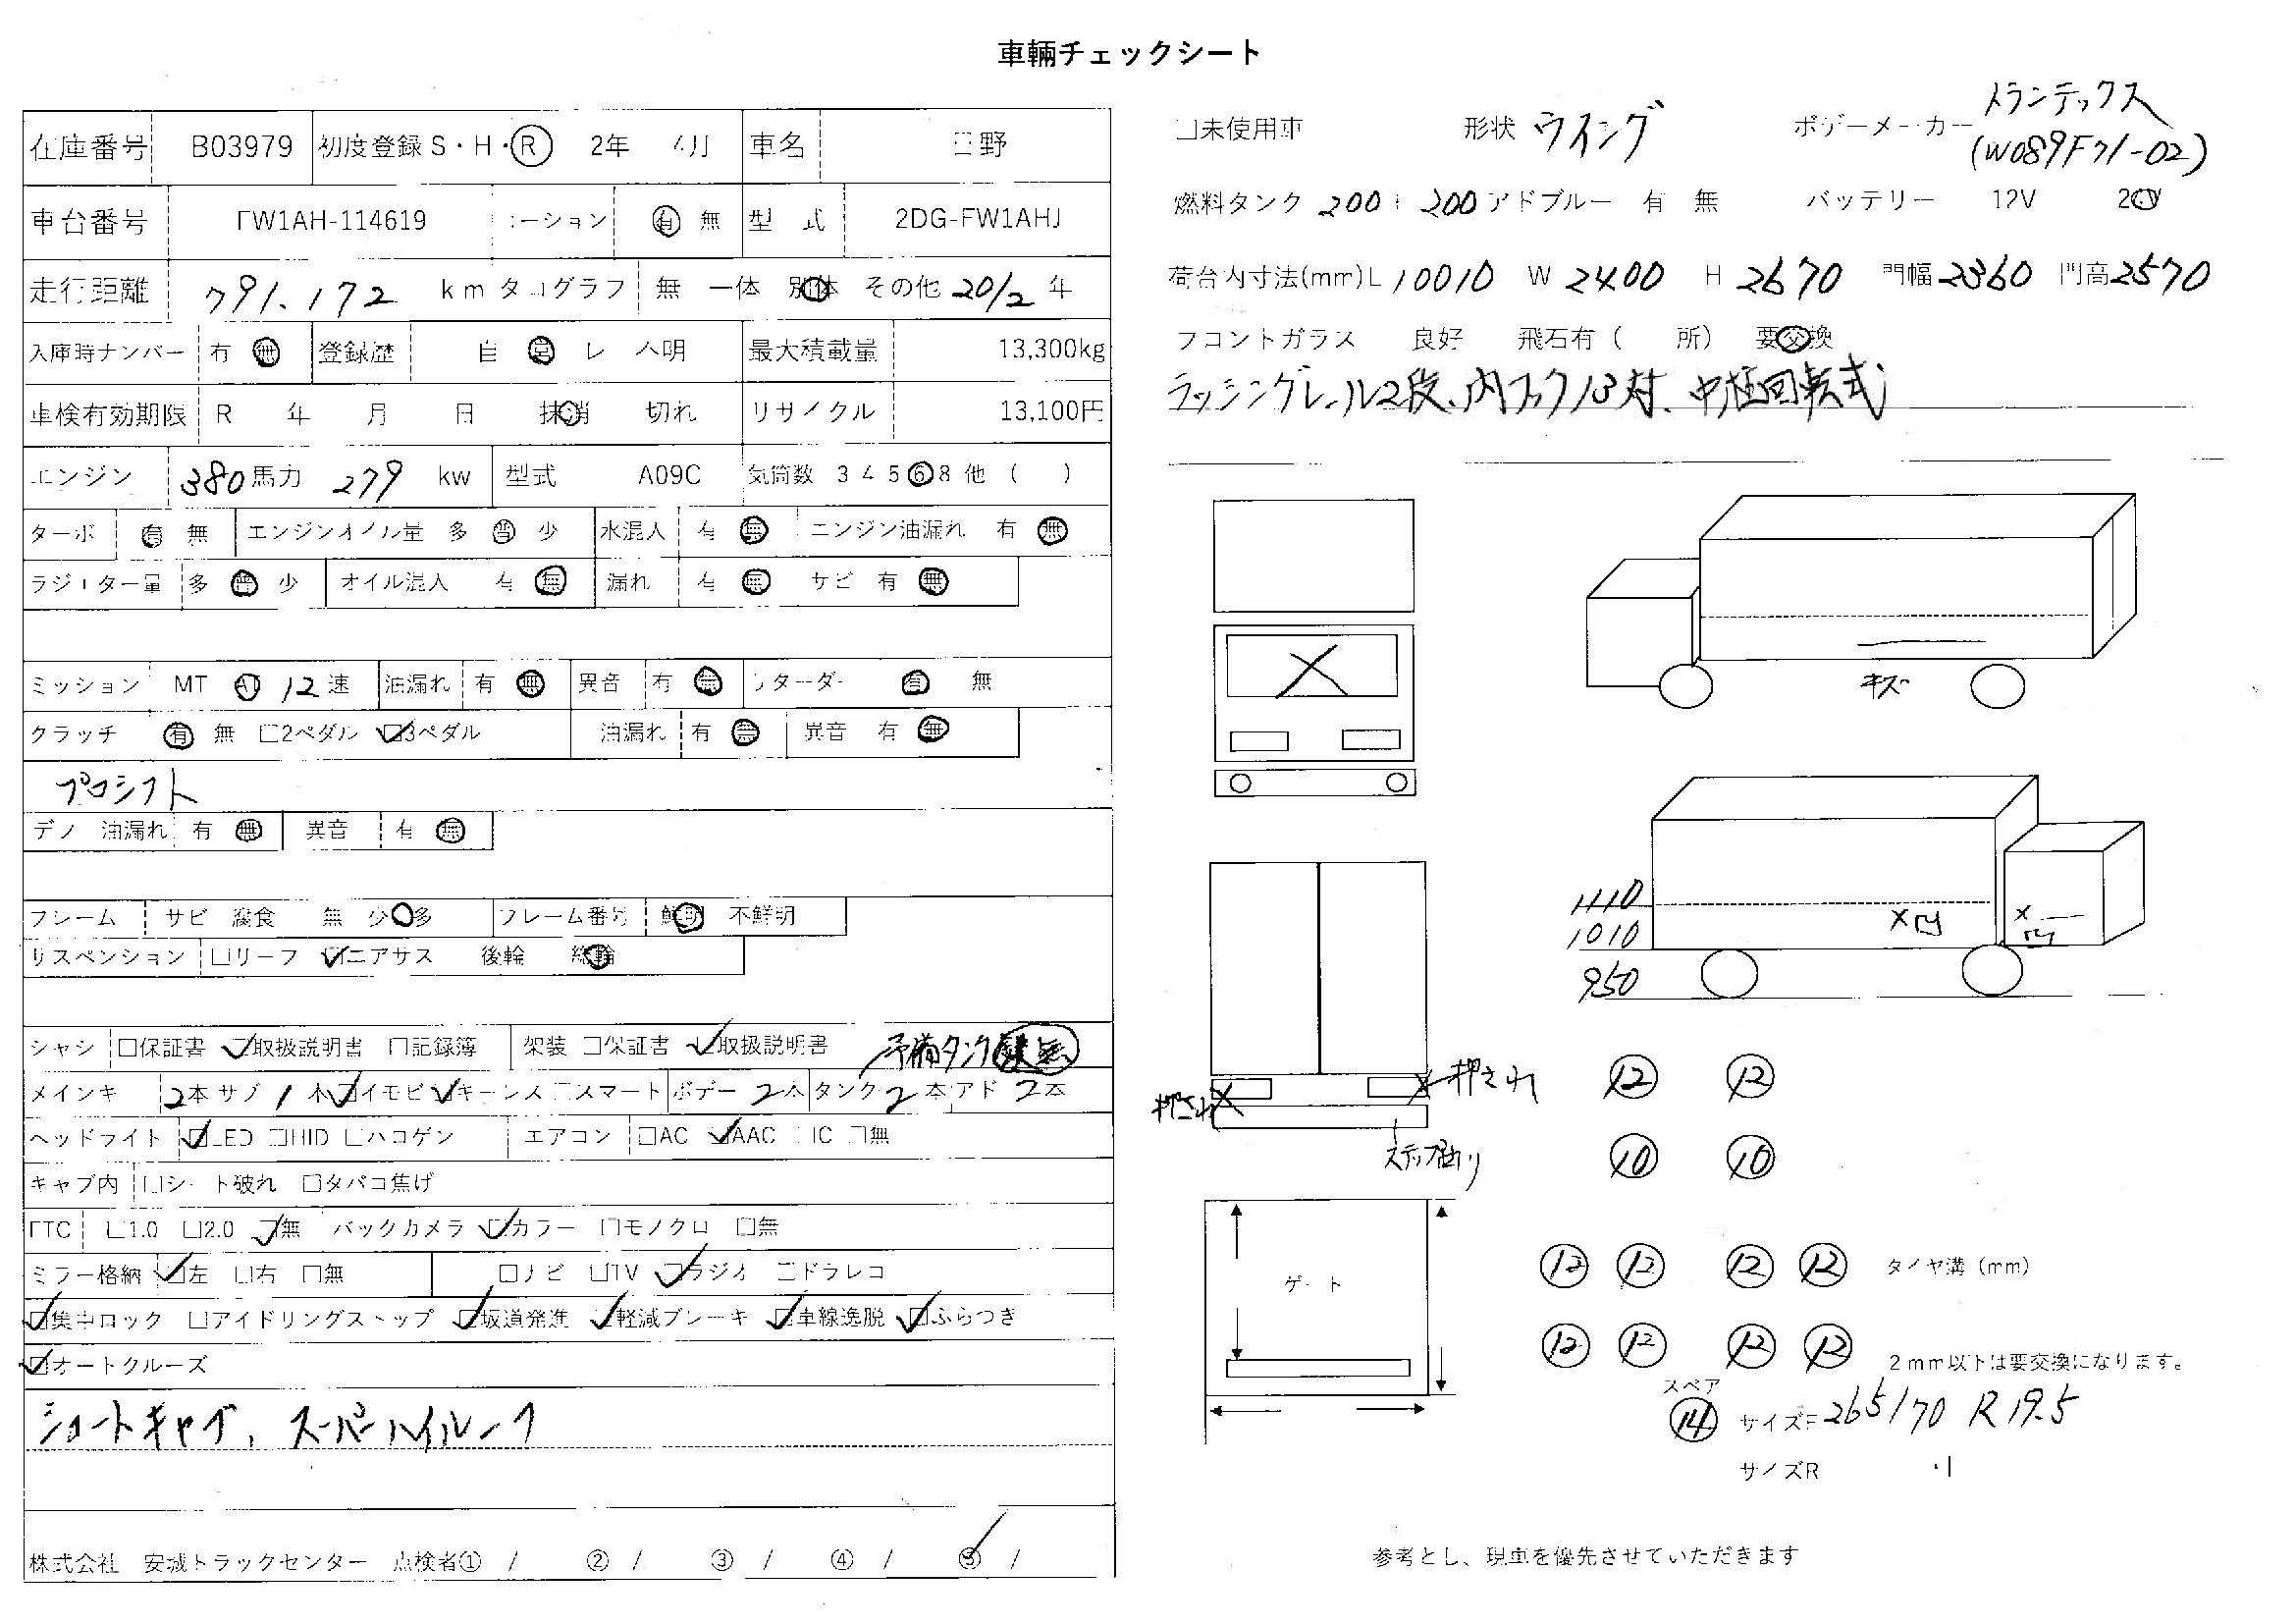 車輌チェックシート
在庫番号 B03979 初度登録 S・H・R 2年 4月 車名 日野
車台番号 FW1AH-114619 コーション 有 無 型 式 2DG-FW1AHJ
走行距離 791.172 km タコグラフ 無 一体 別体 その他 20/2 年
入庫時ナンバー 有 無 登録歴 自 営 レ 不明 最大積載量 13,300kg
車検有効期限 R 年 月 日 抹消 切れ リサイクル 13,100円
エンジン 380馬力 279 kw 型式 A09C 気筒数 3 4 5 6 8 他 ( )
ターボ 有 無 エンジンオイル量 多 普 少 水混入 有 無 エンジン油漏れ 有 無
ラジエター量 多 普 少 オイル混入 有 無 漏れ 有 無 サビ 有 無
ミッション MT AT 12速 油漏れ 有 無 異音 有 無 リターダー 有 無
クラッチ 有 無 □2ペダル ☑3ペダル 油漏れ 有 無 異音 有 無
プロシフト
デフ 油漏れ 有 無 異音 有 無
フレーム サビ 腐食 無 少 多 フレーム番号 鮮明 不鮮明
サスペンション □リーフ ☑エアサス 後輪 総輪
シャシ □保証書 ☑取扱説明書 □記録簿 架装 □保証書 ☑取扱説明書 予備タンク 無
メインキ 2本 サブ 1本 ☑イモビ ☑キーレス □スマート ボデー 2本 タンク 2本 アド 2本
ヘッドライト ☑LED □HID □ハロゲン エアコン □AC ☑AAC □C □無
キャブ内 □シート破れ □タバコ焦げ
ETC □1.0 □2.0 ☑無 バックカメラ ☑カラー □モノクロ □無
ミラー格納 ☑左 □右 □無 □ナビ □TV ☑ラジオ □ドラレコ
☑集中ロック □アイドリングストップ ☑坂道発進 ☑軽減ブレーキ ☑車線逸脱 ☑ふらつき
☑オートクルーズ
ショートキャブ、スーパーハイルーフ
株式会社 安城トラックセンター 点検者① / ② / ③ / ④ / ⑤ /
□未使用車 形状 ウイング ボデーメーカー トランテックス
(W089F71-02)
燃料タンク 200 + 200 アドブルー 有 無 バッテリー 12V 24V
荷台内寸法(mm) L 10010 W 2400 H 2670 門幅 2360 門高 2570
フロントガラス 良好 飛石有 ( 所) 要交換
ラッシングレール2段、内フック13対、中柱回転式
キズ
1110
1010
950
×凹
×
凹
押され
押され
ステップ曲り
ゲート
12 12
10 10
12 12 12 12 タイヤ溝 (mm)
12 12 12 12 2mm以下は要交換になります。
スペア
14 サイズF 265/70 R19.5
サイズR 〃
参考とし、現車を優先させていただきます